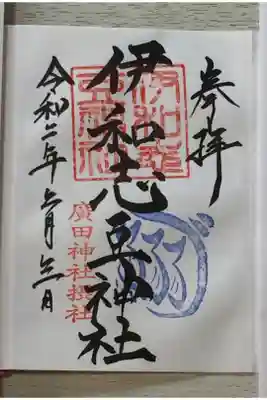 奉拝
伊和志豆神社
廣田神社摂社
令和二年 月 日